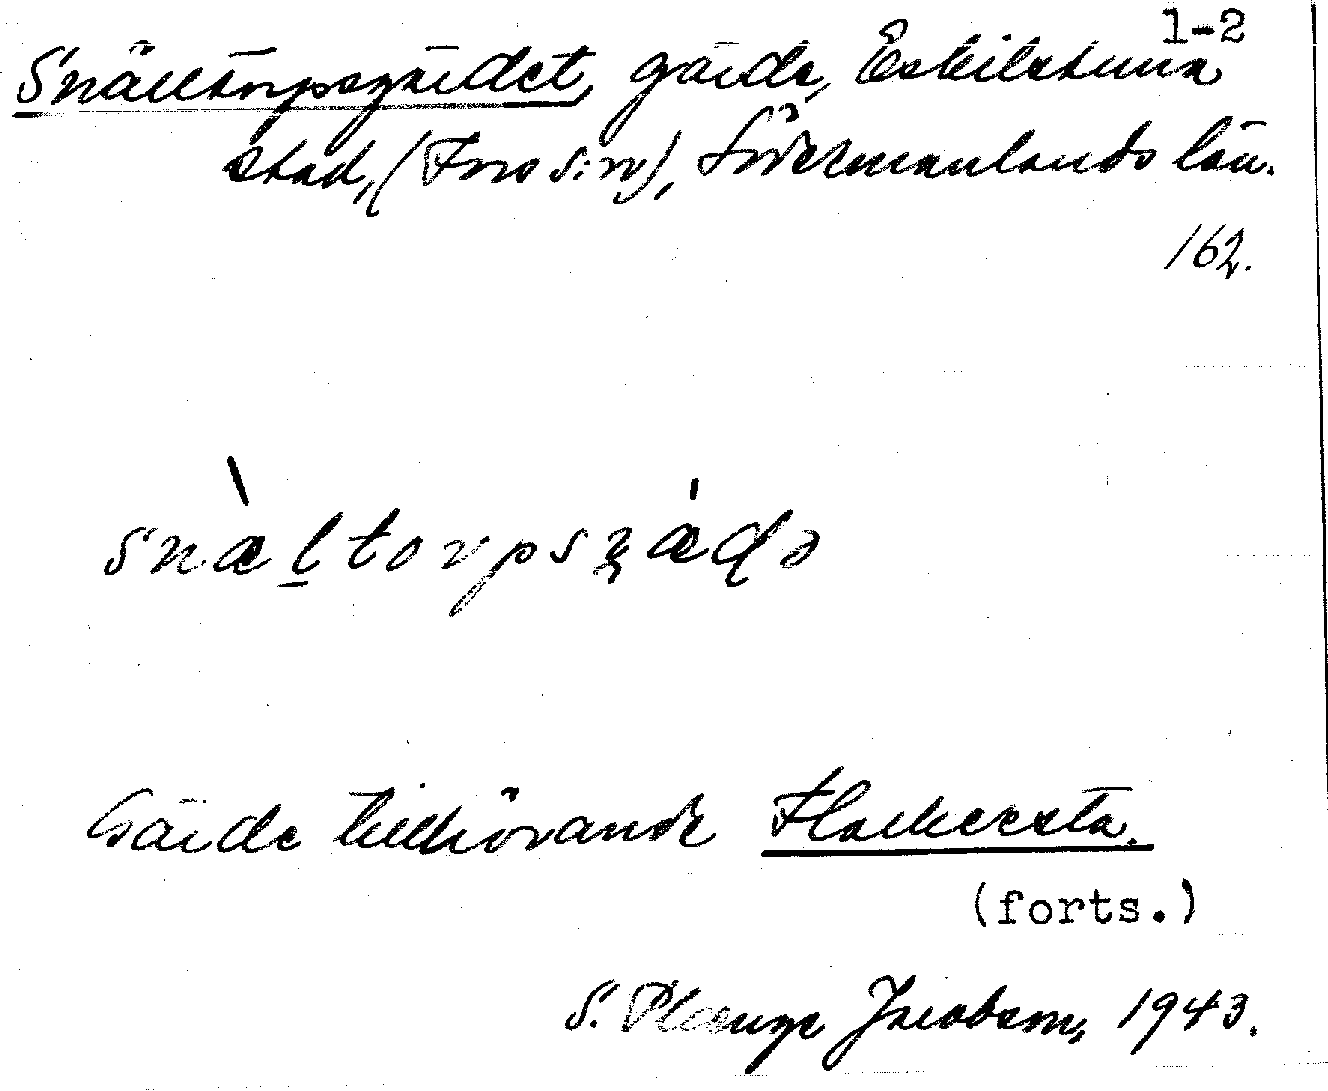 1-2
Snälltorpsgärdet, gärde, Eskilstuna
stad, (Fors s:n), Södermanlands län.
162.
snæ̀ḻtorpsȝæ̍ḍə
Gärde tillhörande Flackersta.
(forts.)
S. Plænge Jacobson, 1943.